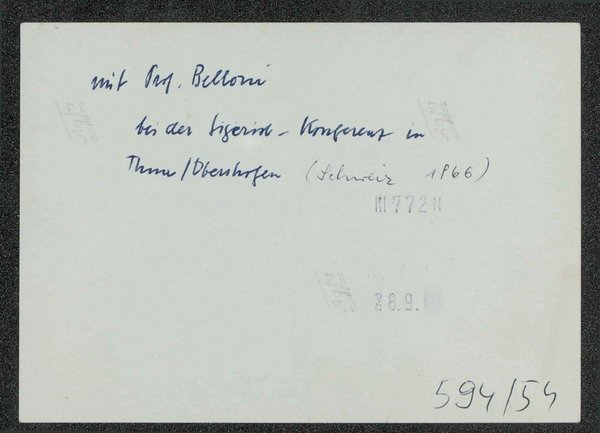 mit Prof. Belloni
bei der Sigerist-Konferenz in
Thun/Oberhofen (Schweiz 1966)
KI 772 M
28.9.
594/54